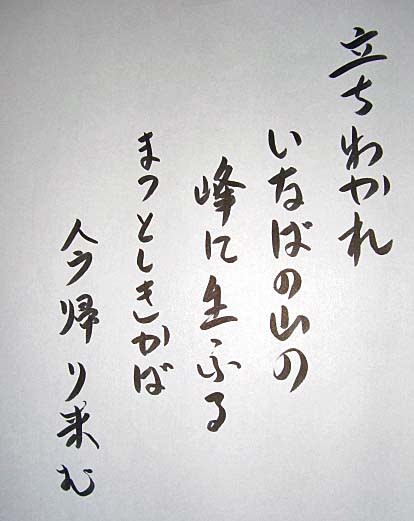 立ちわかれ
いなばの山の
峰に生ふる
まつとしきかば
今帰り来む